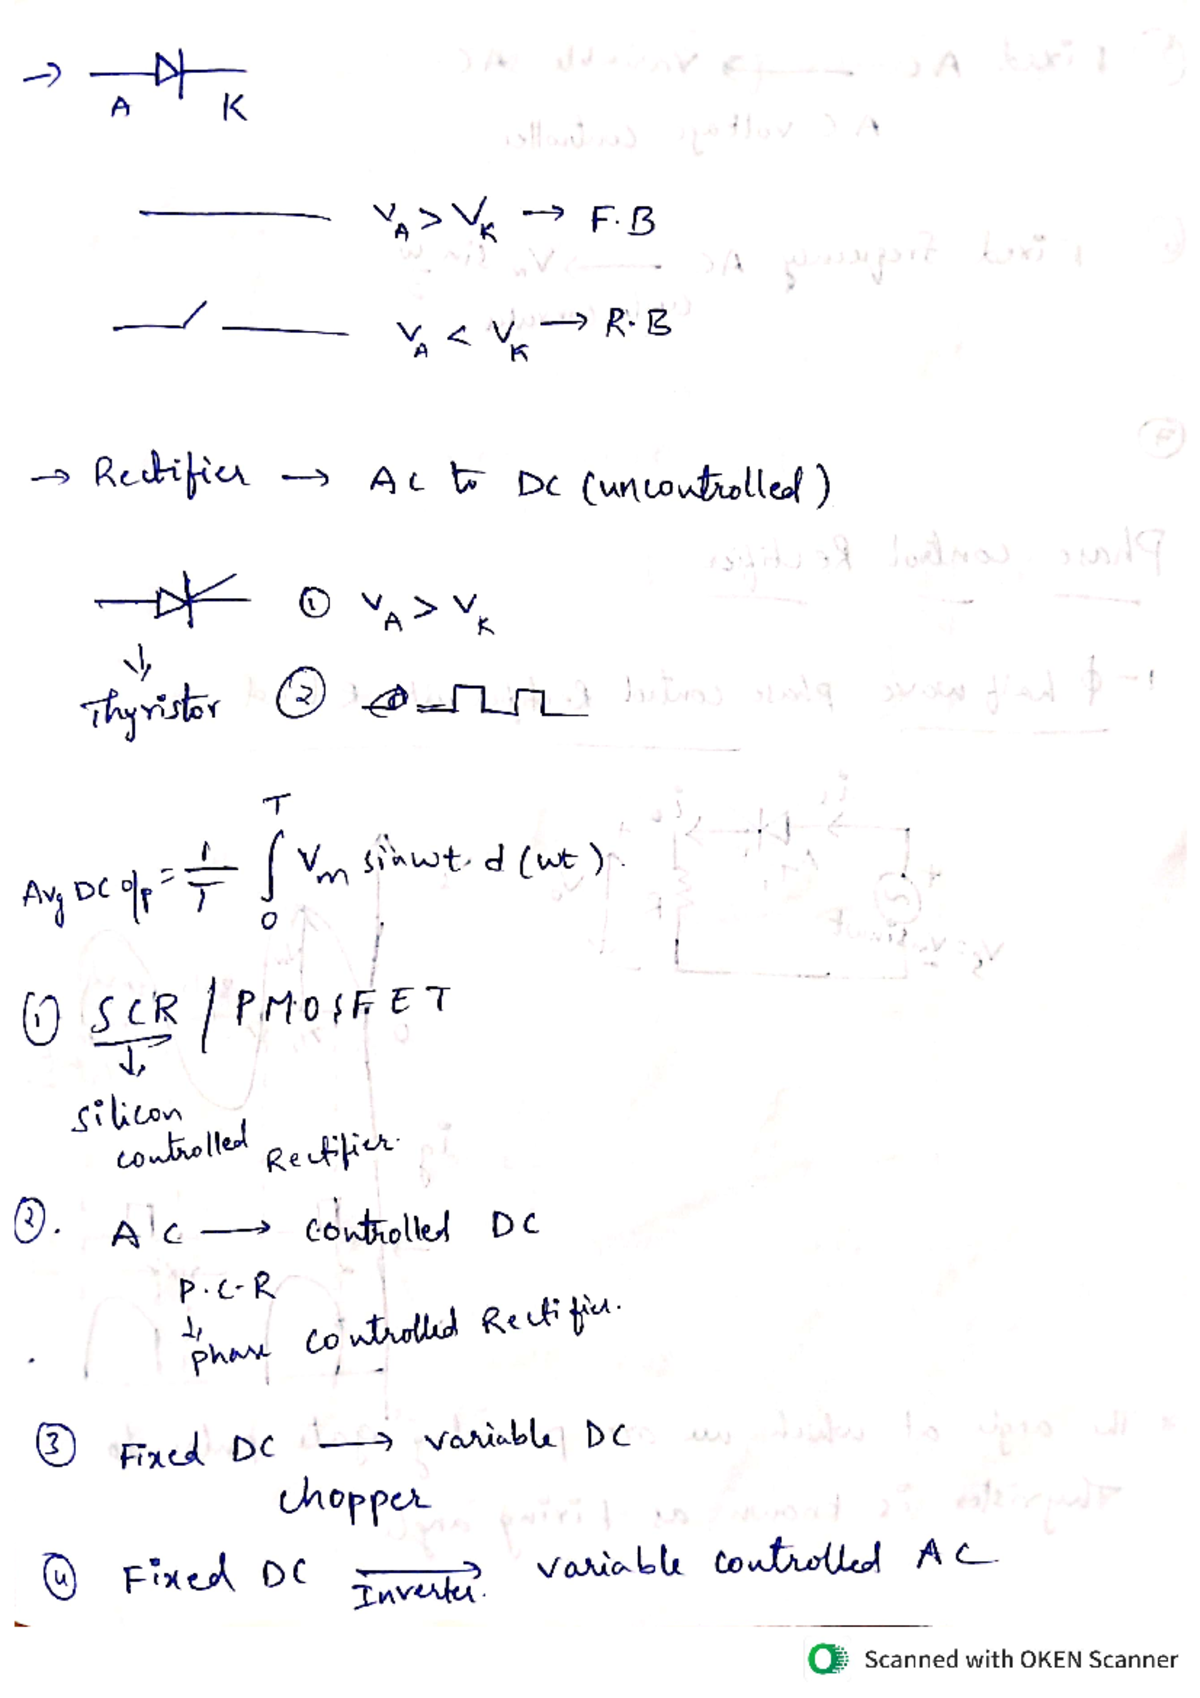 → A K
V_A > V_K → F.B
V_A < V_K → R.B
→ Rectifier → AC to DC (uncontrolled)
① V_A > V_K
↓
Thyristor ②
Avg DC o/p = 1/T ∫₀ᵀ V_m sinwt. d(wt).
① SCR / PMOSFET
↓
silicon
controlled Rectifier.
②. AC → controlled DC
P.C.R
↓
phase controlled Rectifier.
③ Fixed DC → variable DC
chopper
④ Fixed DC → Inverter. variable controlled AC
Scanned with OKEN Scanner